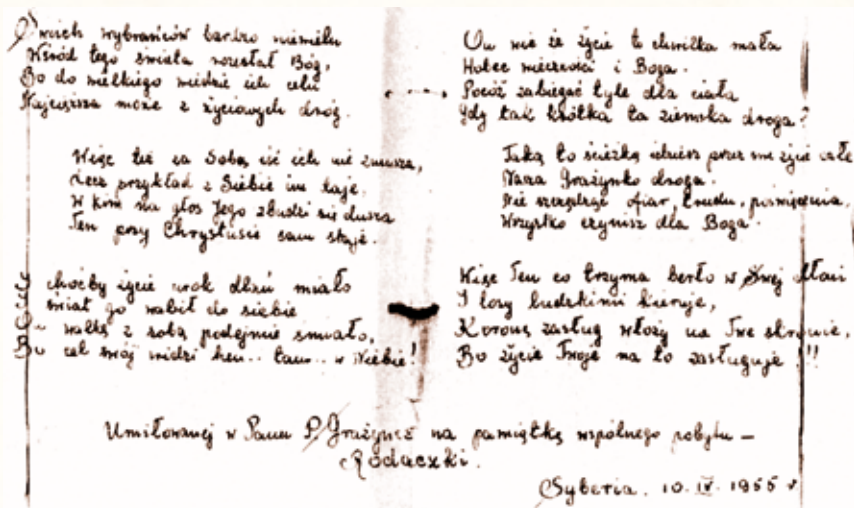 Swoich wybrańców bardzo niewielu
Wśród tego świata rozesłał Bóg,
Bo do wielkiego wiedzie ich celu
Najcięższa może z życiowych dróg.
Więc też za Sobą iść ich nie zmusza,
Lecz przykład z Siebie im daje.
W kom na głos Jego zbudzi się dusza
Ten przy Chrystusie sam staje.
choćby życie urok dlań miało
świat go wabił do siebie
On walkę z sobą podejmie śmiało,
Bo cel swój widzi hen.. tam.. w Niebie!
On wie że życie to chwilka mała
Wobec wieczności i Boga.
Pocóż zabiegać tyle dla ciała
Gdy tak krótka ta ziemska droga?
Taką to ścieżką idziesz przez swe życie całe
Nasza Grażynko droga.
Nie szczędząc ofiar, trudu, poświęcenia,
Wszystko czynisz dla Boga.
Więc Ten co trzyma berło w Swej dłoni
I losy ludzkimi kieruje,
Koronę zasług włoży na Twe skronie,
Bo życie Twoje na to zasługuje!!!
Umiłowanej w Panu P. Grażynce na pamiątkę wspólnego pobytu –
Rodaczki.
Syberia. 10.IV. 1955 r